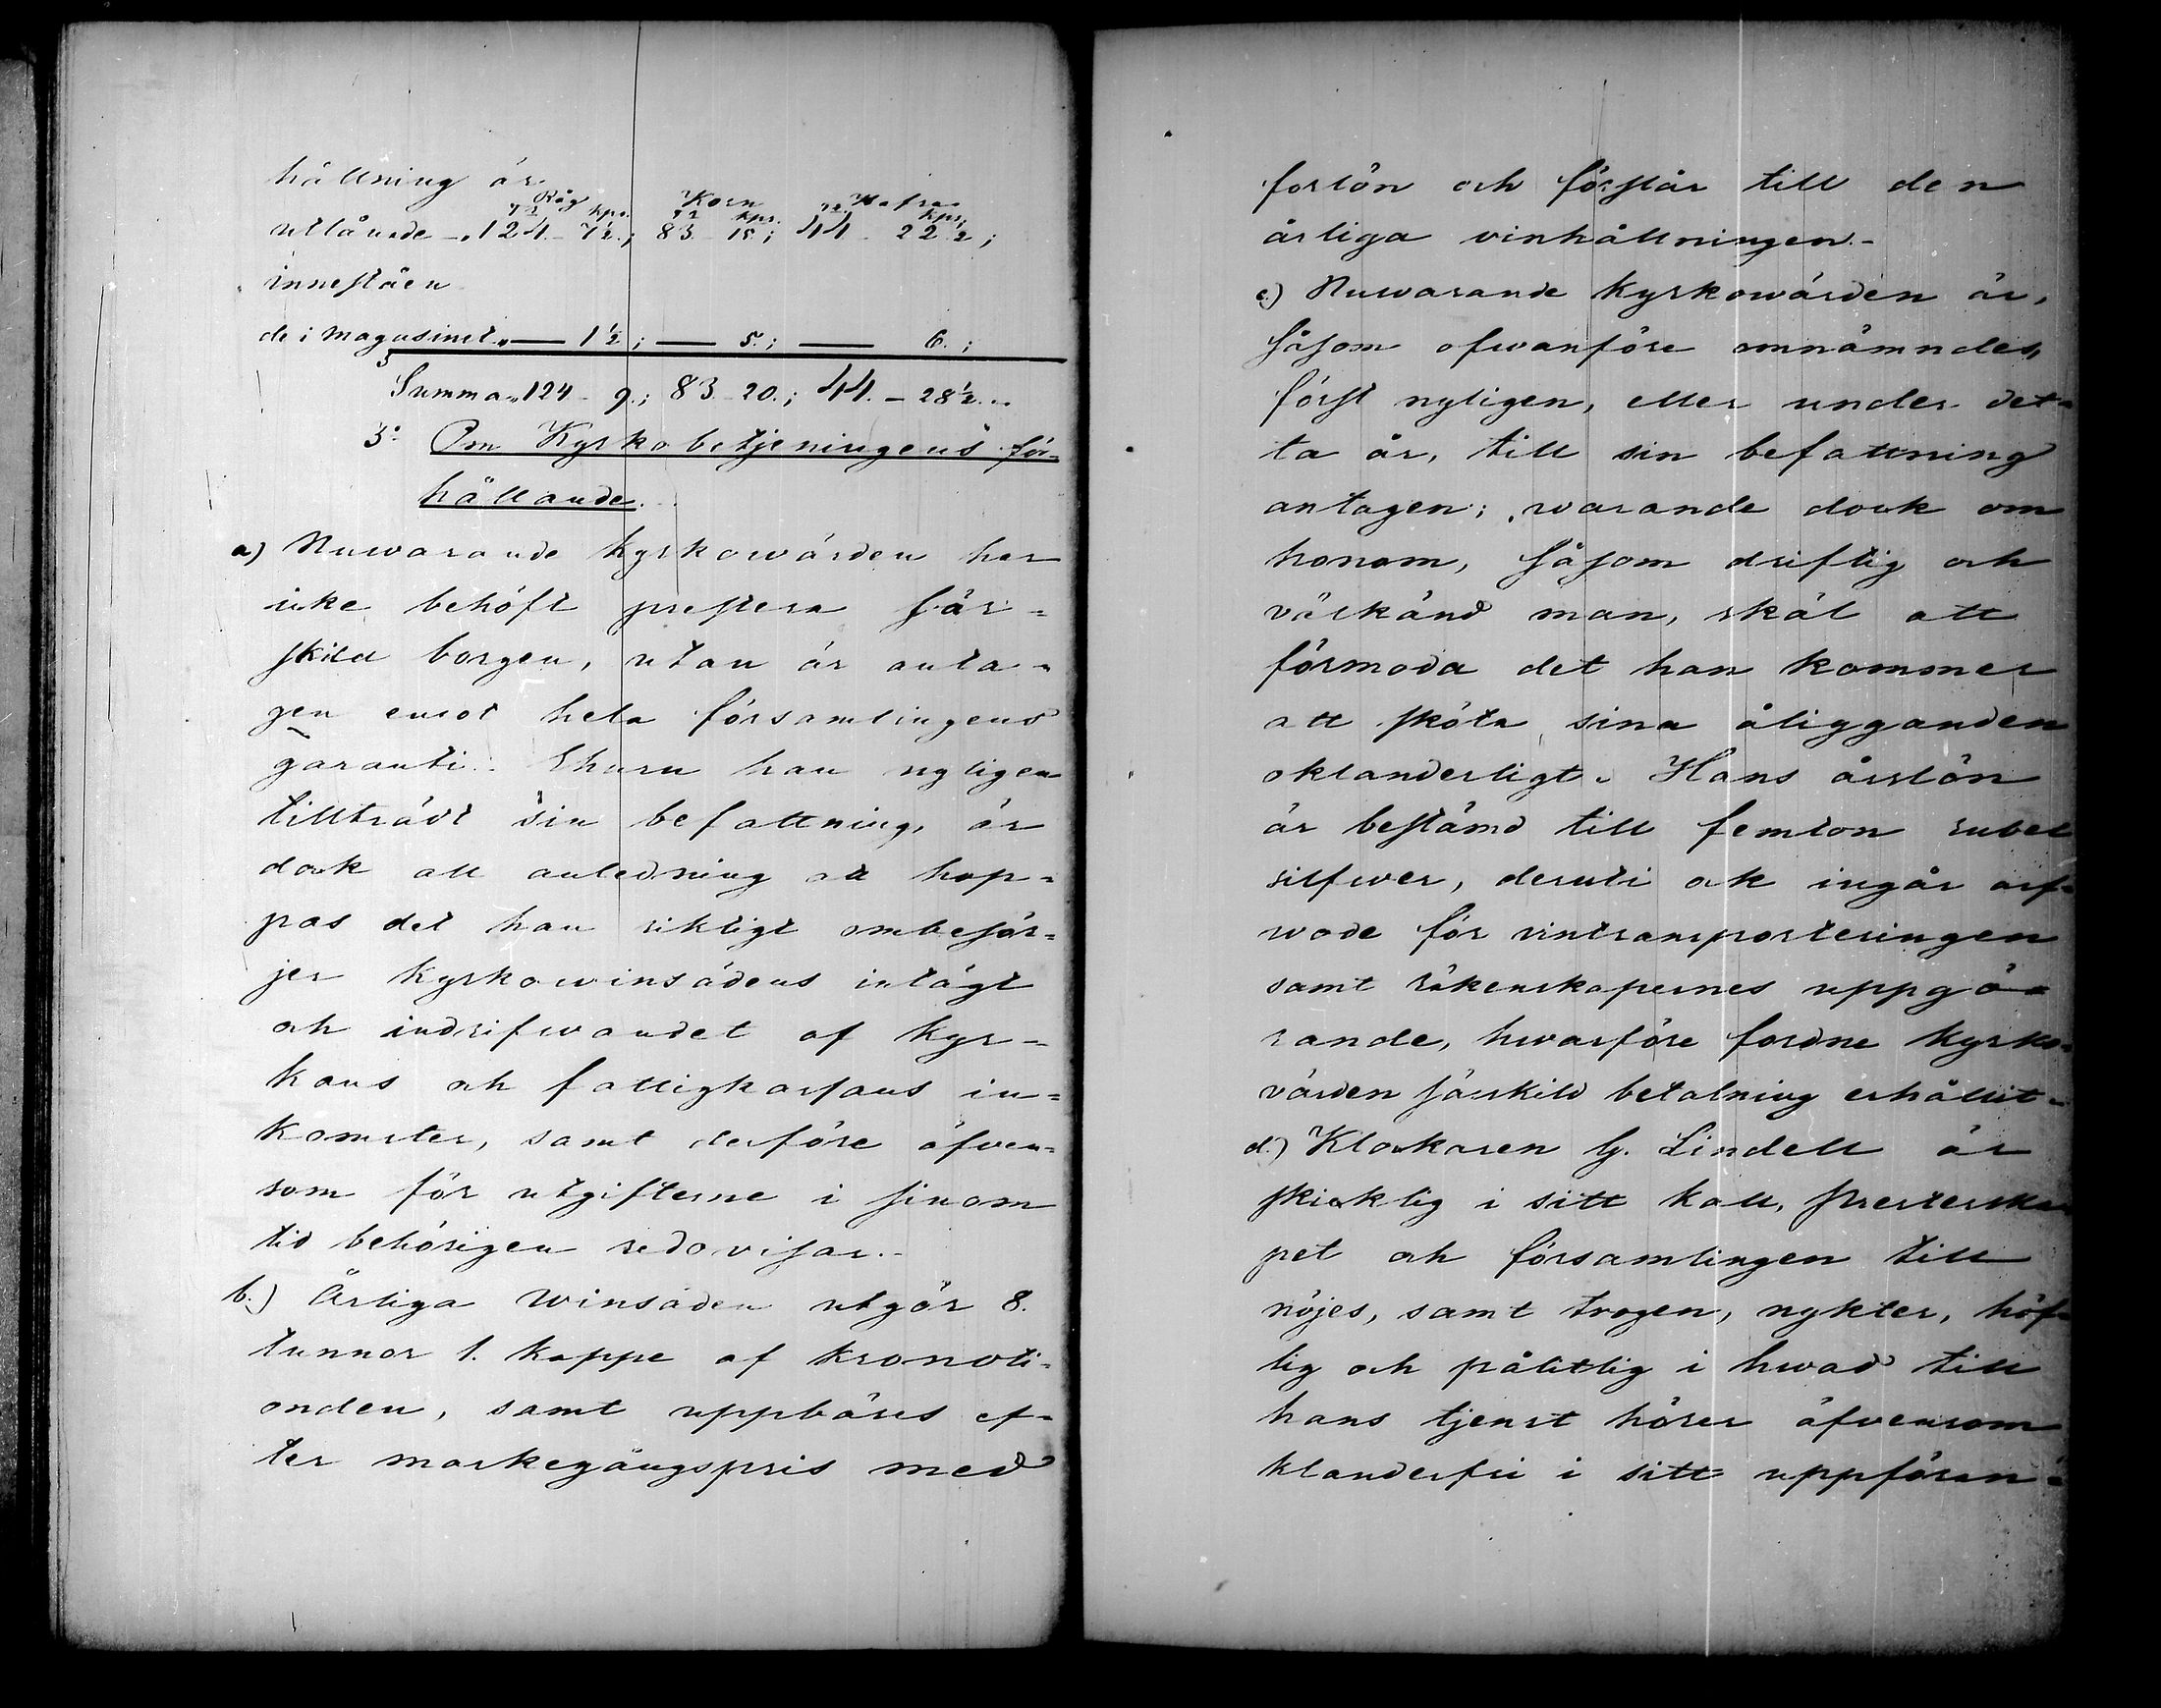 hållning är
Råg Korn Hafra
Tr kpr. Tr kpr. Tr kpr.
utlånde „ 124 - 7½; 83 - 15; 44 - 22½;
inneståen
de i magasinet „ — 1½; — 5.; — 6.;
Summa „ 124 - 9.; 83 - 20.; 44. - 28½. „
3:o Om Kyrkobetjeningens för=
hållande.
a) Nuvarande kyrkowärden har
icke behöft prestera sär=
skild borgen, utan är anta=
gen emot hela församlingens
garanti. Ehuru han nyligen
tillträdt sin befattning, är
dock all anledning att hop=
pas det han riktigt ombesör=
jer kyrkowinsädens intägt
och indrifwandet af kyr=
kans och fattigkassans in=
komster, samt derföre äfven=
som för utgifterne i sinom
tid behörigen redovisar.-
b.) Årliga winsäden utgör 8.
tunnor 1. kappe af kronoti=
onden, samt uppbäres ef=
ter markegångspris med
forlön och förslår till den
årliga vinhållningen.-
c.) Nuvarande kyrkowärden är,
såsom ofwanföre omnämndes,
först nyligen, eller under det=
ta år, till sin befattning
antagen; warande dock om
honom, såsom driftig och
välkänd man, skäl att
förmoda det han kommer
att sköta sina åligganden
oklanderligt. Hans årslön
är bestämd till femton rubel
silfwer, deruti ock ingår arf=
wode för vintransporteringen
samt räkenskapernes uppgö=
rande, hwarföre fordne kyrko=
värden särskild betalning erhållit.
d.) Klockaren G. Lindell är
skicklig i sitt kall, presterska=
pet och församlingen till
nöjes, samt trogen, nykter, höf=
lig och pålitlig i hwad till
hans tjenst hörer äfvensom
klanderfri i sitt uppföran=